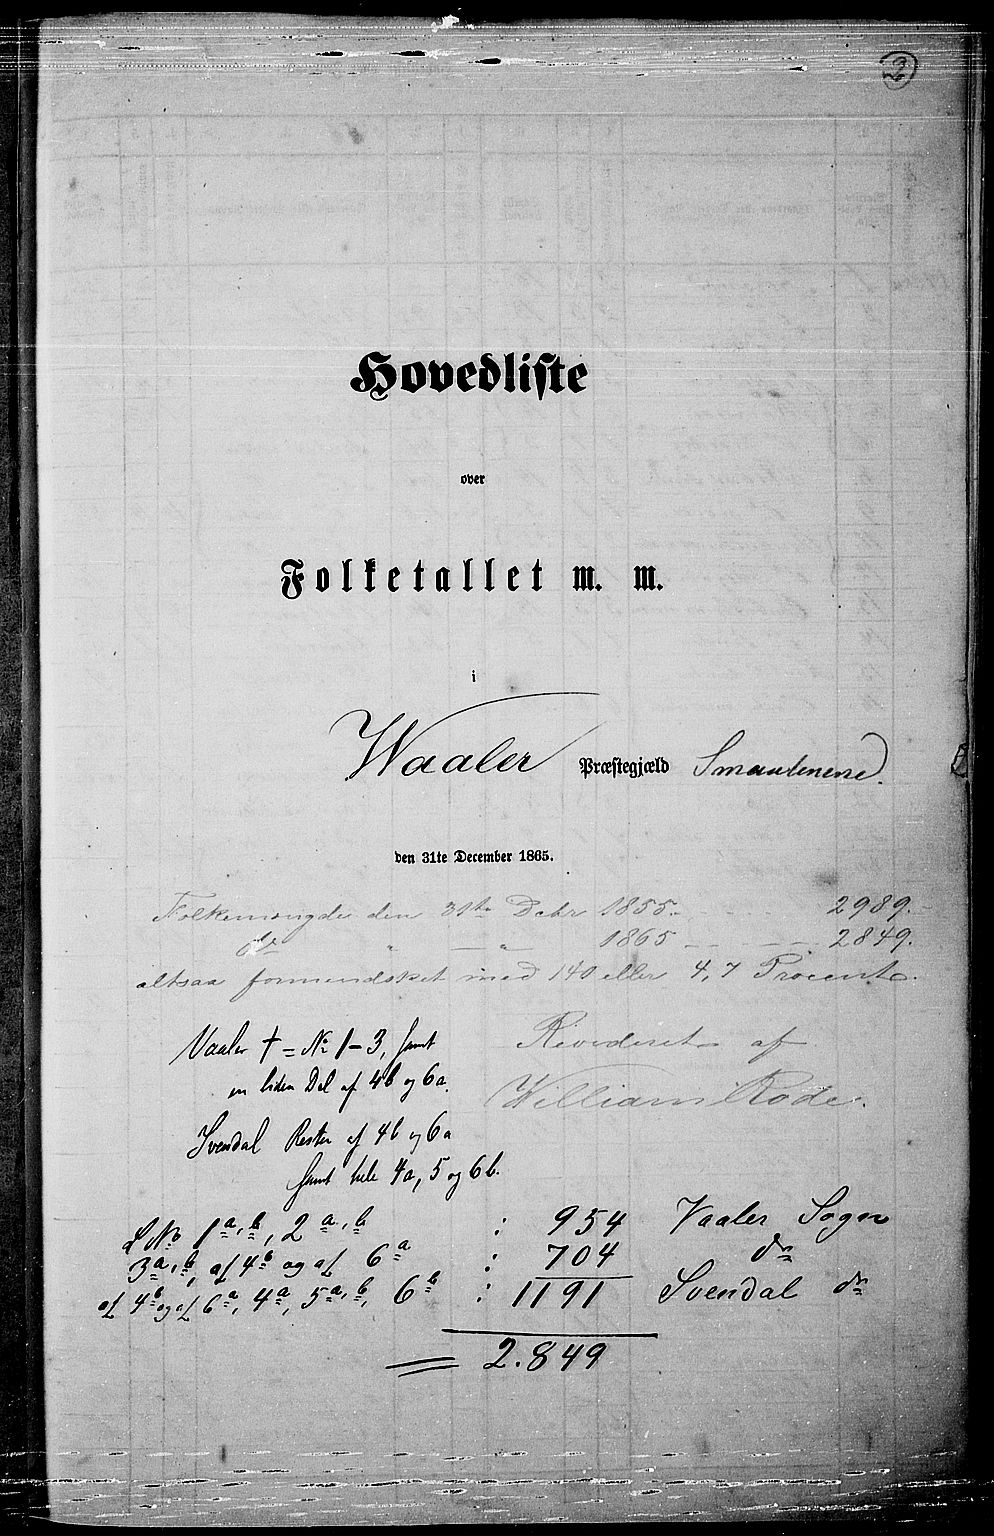 2
Hovedliste
over
Folketallet m. m.
i
Waaler Præstegjæld Smaalenene.
den 31te December 1865.
Folkemængde den 31te Decbr 1855. 2989.
do " — " — 1865 — 2849.
altsaa formindsket med 140 eller 4,7 Procent.
Vaaler † = No 1-3, samt
en liden Del af 4b og 6a.
Revideret af
William Rode.
Svendal Resten af 4b og 6a
samt hele 4a, 5 og 6b.
L No 1a,b, 2a,b : 954 Vaaler Sogn
3a,b, af 4b og af 6a : 704 do
af 4b og af 6a, 4a, 5a,b, 6b : 1191 Svendal do
= 2.849